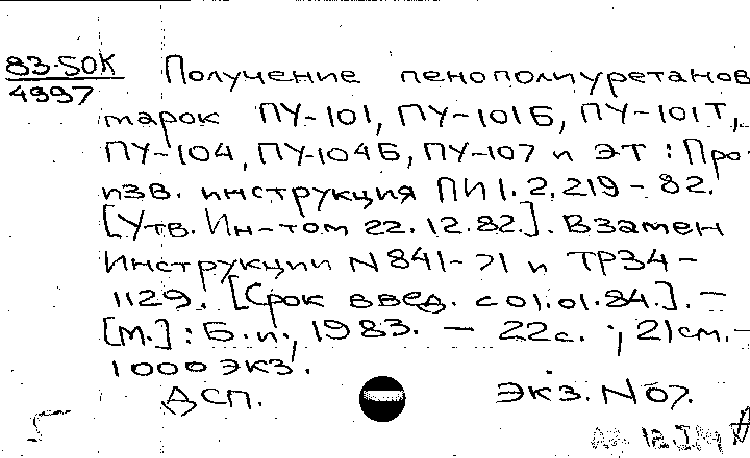 83-50К
4997
Получение пенополиуретанов
марок ПУ-101, ПУ-101Б, ПУ-101Т,
ПУ-104, ПУ-104Б, ПУ-107 и ЭТ : Про-
изв. инструкция ПИ 1.2.219-82.
[Утв. Ин-том 22.12.82.]. Взамен
Инструкции N 841-71 и ТР34-
1129. [Срок введ. с 01.01.84.]. —
[М.] : Б.и., 1983. — 22с. ; 21см. —
1000 экз.
ДСП. Экз. N 07.